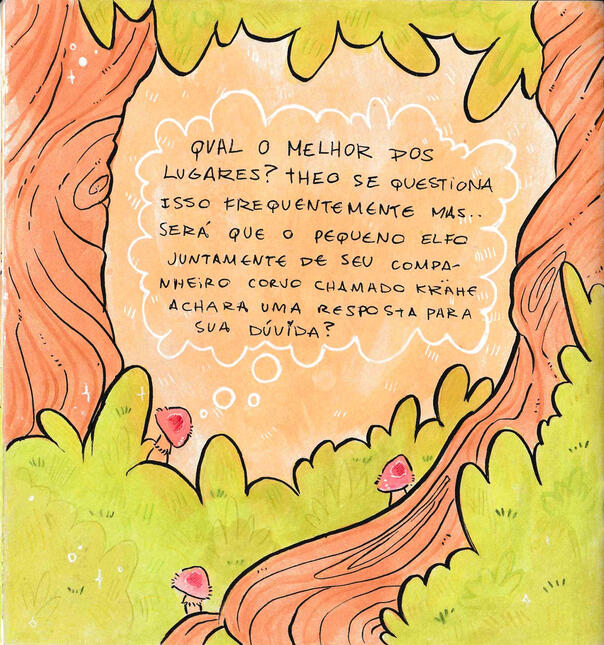 QUAL O MELHOR DOS
LUGARES? THEO SE QUESTIONA
ISSO FREQUENTEMENTE MAS..
SERÁ QUE O PEQUENO ELFO
JUNTAMENTE DE SEU COMPA-
NHEIRO CORVO CHAMADO KRÄHE
ACHARA UMA RESPOSTA PARA
SUA DÚVIDA?